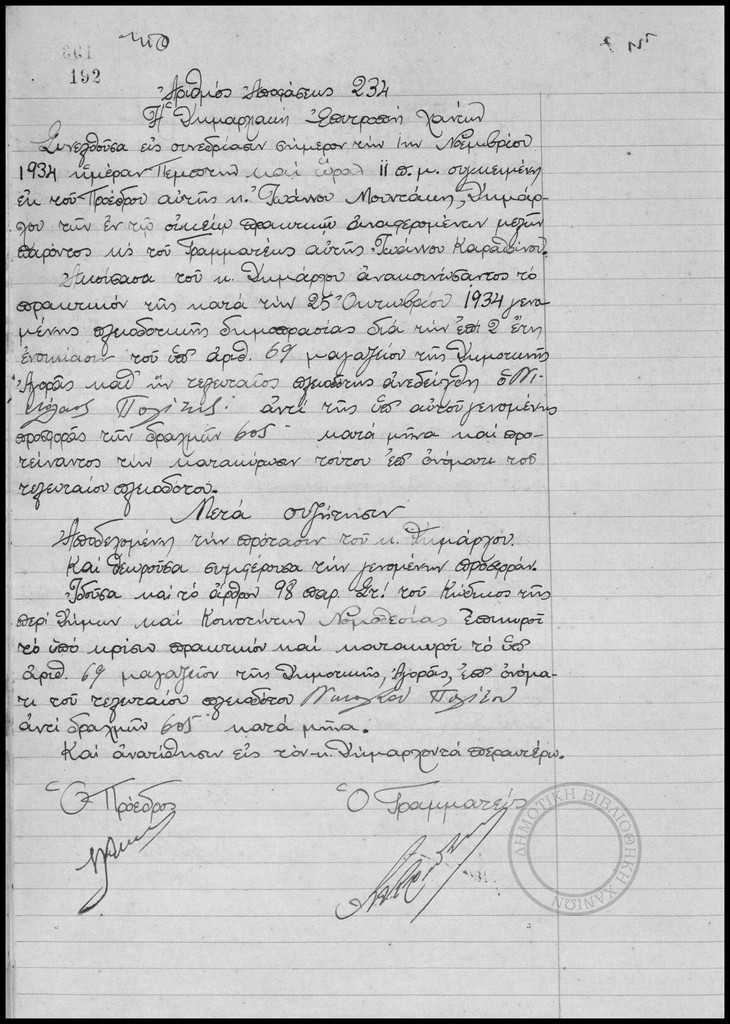 361
192
Ἀριθμὸς Ἀποφάσεως 234
Ἡ Δημαρχιακὴ Ἐπιτροπὴ Χανίων
Συνελθοῦσα εἰς συνεδρίασιν σήμερον τὴν 1ην Νοεμβρίου
1934 ἡμέραν Πέμπτην καὶ ὥραν 11 π.μ. συγκειμένη
ἐκ τοῦ Προέδρου αὐτῆς κ. Ἰωάννου Μουντάκη, Δημάρ-
χου τῶν ἐν τῷ οἰκείῳ πρακτικῷ ἀναφερομένων μελῶν
παρόντος κ᾽ τοῦ Γραμματέως αὐτῆς Ἰωάννου
Ἀκούσασα τοῦ κ. Δημάρχου ἀνακοινώσαντος τὸ
πρακτικὸν τῆς κατὰ τὴν 25 Ὀκτωβρίου 1934 γενο-
μένης πλειοδοτικῆς δημοπρασίας διὰ τὴν ἐπὶ 2 ἔτη
ἐνοικίασιν τοῦ ὑπ᾽ ἀριθ. 69 μαγαζείου τῆς Δημοτικῆς
Ἀγορᾶς καθ᾽ ἣν τελευταῖος πλειοδότης ἀνεδείχθη ὁ Νι-
κόλαος Πολίτης ἀντὶ τῆς ὑπ᾽ αὐτοῦ γενομένης
προσφορᾶς τῶν δραχμῶν 605 κατὰ μῆνα καὶ προ-
τείναντος τὴν κατακύρωσιν τούτου ἐπ᾽ ὀνόματι τοῦ
τελευταίου πλειοδότου.
Μετὰ συζήτησιν
Ἀποδεχομένη τὴν πρότασιν τοῦ κ. Δημάρχου.
Καὶ θεωροῦσα συμφέρουσα τὴν γενομένην προσφοράν.
Ἰδοῦσα καὶ τὸ ἄρθρον 98 παρ. Στ! τοῦ Κώδικος τῆς
περὶ Δήμων καὶ Κοινοτήτων Νομοθεσίας Ἐπικυροῖ
τὸ ὑπὸ κρίσιν πρακτικὸν καὶ κατακυροῖ τὸ ὑπ᾽
ἀριθ. 69 μαγαζεῖον τῆς Δημοτικῆς Ἀγορᾶς, ἐπ᾽ ὀνόμα-
τι τοῦ τελευταίου πλειοδότου Νικολάου Πολίτου
ἀντὶ δραχμῶν 605 κατὰ μῆνα.
Καὶ ἀνατίθησιν εἰς τὸν κ. Δήμαρχον τὰ περαιτέρω.
Ὁ Πρόεδρος Ὁ Γραμματεὺς
ΔΗΜΟΤΙΚΗ ΒΙΒΛΙΟΘΗΚΗ ΧΑΝΙΩΝ